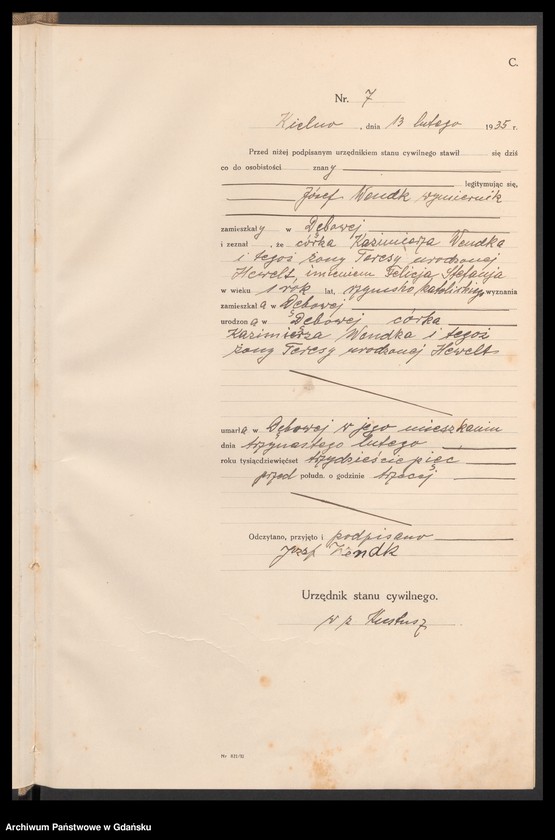 C.
Nr. 7
Kielno, dnia 13 lutego 1935 r.
Przed niżej podpisanym urzędnikiem stanu cywilnego stawił się dziś
co do osobistości znany
legitymując się,
Józef Wendk wymiernik
zamieszkały w Dębowej
i zeznał, że córka Kazimierza Wendka
i tegoż żony Teresy urodzonej
Hewelt, imieniem Felicja Stefanja
w wieku 1 rok lat, rzymsko katolickiego wyznania
zamieszkała w Dębowej
urodzona w Dębowej córka
Kazimierza Wendka i tegoż
żony Teresy urodzonej Hewelt
umarła w Dębowej w jego mieszkaniu
dnia trzynastego lutego
roku tysiącdziewięćset trzydzieście pięć
przed połudn. o godzinie trzeciej
Odczytano, przyjęto i podpisano
Józef Wendk
Urzędnik stanu cywilnego.
w z
Nr 821/32
Archiwum Państwowe w Gdańsku